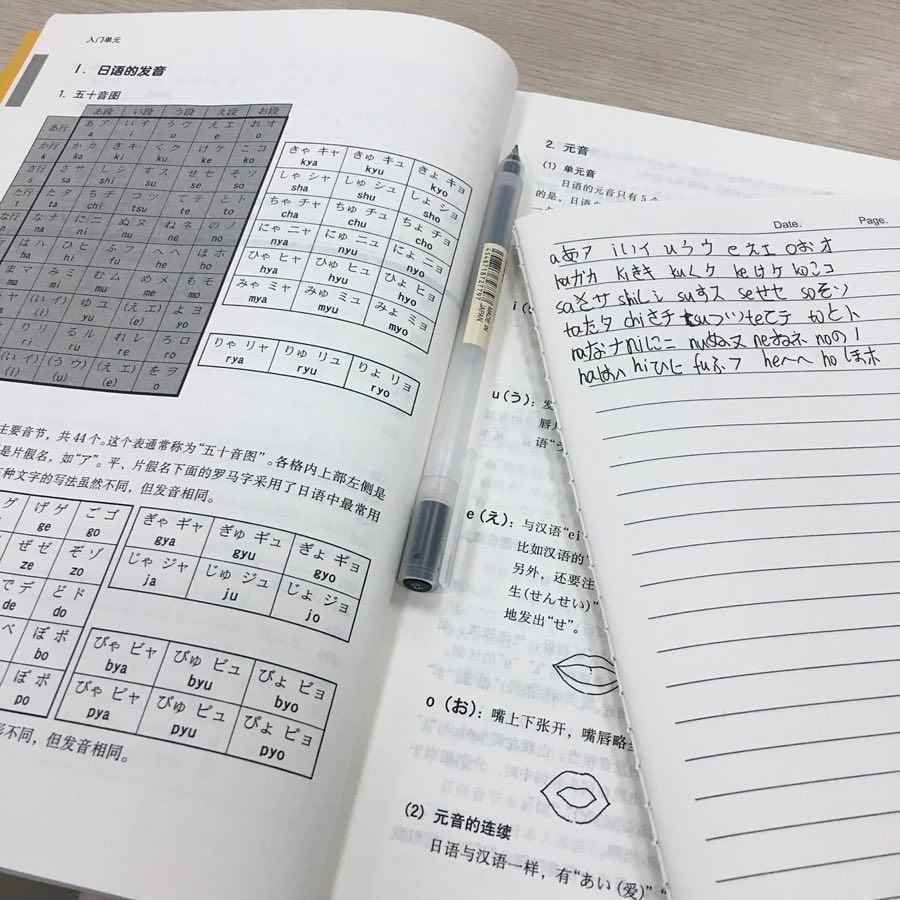 入门单元
1. 日语的发音
1. 五十音图
あ段 い段 う段 え段 お段
あ行 あ ア い イ う ウ え エ お オ
a i u e o
か行 か カ き キ く ク け ケ こ コ
k ka ki ku ke ko
さ行 さ サ し シ す ス せ セ そ ソ
s sa shi su se so
た行 た タ ち チ つ ツ て テ と ト
t ta chi tsu te to
な行 な ナ に ニ ぬ ヌ ね ネ の ノ
n na ni nu ne no
は ハ ひ ヒ ふ フ へ ヘ ほ ホ
ha hi fu he ho
ま マ み ミ む ム め メ も モ
ma mi mu me mo
(い イ) ゆ ユ (え エ) よ ヨ
(i) yu (e) yo
り リ る ル れ レ ろ ロ
ri ru re ro
(い イ) (う ウ) (え エ) を ヲ
(i) (u) (e) o
きゃ キャ きゅ キュ きょ キョ
kya kyu kyo
しゃ シャ しゅ シュ しょ ショ
sha shu sho
ちゃ チャ ちゅ チュ ちょ チョ
cha chu cho
にゃ ニャ にゅ ニュ にょ ニョ
nya nyu nyo
ひゃ ヒャ ひゅ ヒュ ひょ ヒョ
hya hyu hyo
みゃ ミャ みゅ ミュ みょ ミョ
mya myu myo
りゃ リャ りゅ リュ りょ リョ
rya ryu ryo
主要音节，共44个。这个表通常称为“五十音图”。各格内上部左侧是
是片假名，如“ア”。平、片假名下面的罗马字采用了日语中最常用
种文字的写法虽然不同，但发音相同。
グ げ ゲ ご ゴ
ge go
ぜ ゼ ぞ ゾ
ze zo
で デ ど ド
de do
ベ ぼ ボ
bo
ぽ ポ
po
ぎゃ ギャ ぎゅ ギュ ぎょ ギョ
gya gyu gyo
じゃ ジャ じゅ ジュ じょ ジョ
ja ju jo
びゃ ビャ びゅ ビュ びょ ビョ
bya byu byo
ぴゃ ピャ ぴゅ ピュ ぴょ ピョ
pya pyu pyo
不同，但发音相同。
4548718727797
MADE IN JAPAN
2. 元音
(1) 单元音
日语的元音只有5个
的是，日语
i (
u (う)：发
唇
语“
e (え)：与汉语“ei
比如汉语的“
另外，还要注
生(せんせい)”
地发出“せ”。
o (お)：嘴上下张开，嘴唇略
(2) 元音的连续
日语与汉语一样，有“あい(爱)”“
Date. Page.
aあア iいイ uうウ eえエ oおオ
kaかカ kiきキ kuくク keけケ koこコ
saさサ shiしシ suすス seせセ soそソ
taたタ chiさチ tsuつツ teてテ toとト
naなナ niにニ nuぬヌ neねネ noのノ
haはハ hiひヒ fuふフ heへヘ hoほホ